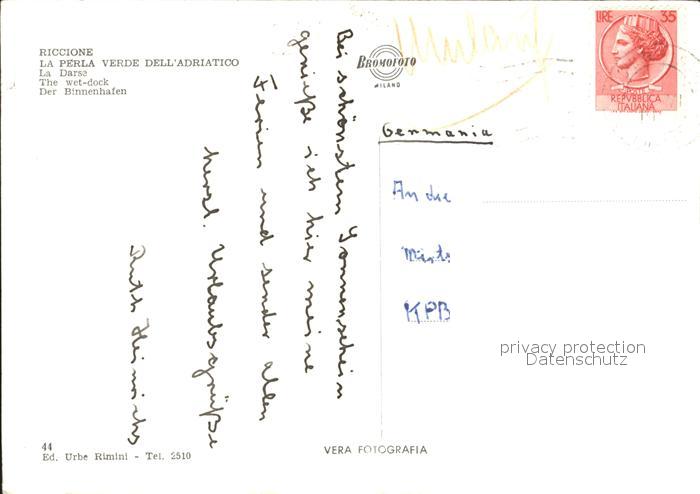 RICCIONE
LA PERLA VERDE DELL'ADRIATICO
La Darse
The wet-dock
Der Binnenhafen
BROMOFOTO
MILANO
LIRE 35
REPVBBLICA
ITALIANA
Germania
Bei schönstem Sonnenschein
genieße ich hier meine
Ferien und sende allen
herzl. Urlaubsgrüße
Ruth Heinrichs
An die
KPB
privacy protection
Datenschutz
44
Ed. Urbe Rimini - Tel. 2510
VERA FOTOGRAFIA